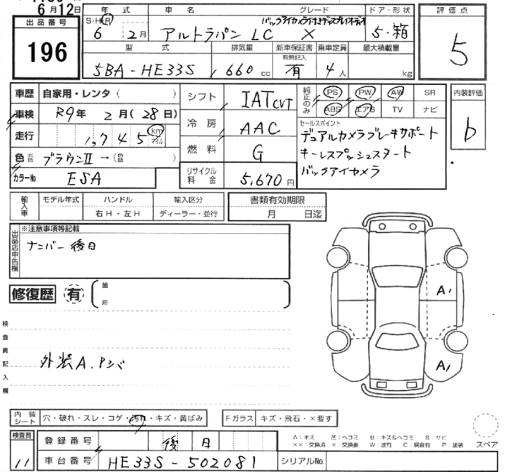 6月12日
出品番号
196
年式 車名 グレード ドア・形状
S・H・R 6年 2月 アルトラパン LC X 5・箱
バックアイカメラ付ディスプレイオーディオ
型式 排気量 新車保証書 乗車定員 最大積載量
5BA-HE33S 660 cc 有 4人 kg
評価点
5
内装評価
b
車歴 自家用・レンタ( )
車検 R9年 2月(28日)
走行 1,745 km
色 ブラウンII →( )
カラーNo ESA
シフト IAT CVT
冷房 AAC
燃料 G
リサイクル料金 5,670円
純正のみ PS PW AW SR
ABS エアB TV ナビ
セールスポイント
デュアルカメラブレーキサポート
キーレスプッシュスタート
バックアイカメラ
輸入車 モデル年式 ハンドル 輸入区分 書類有効期限
右H・左H ディーラー・並行 月 日迄
※注意事項等記載
ナンバー後日
修復歴 有 箇所
A1
A1
検査員記入欄
外装A.Pシバ
内装シート 穴・破れ・スレ・コゲ・汚れ・キズ・黄ばみ Fガラス キズ・飛石・×要す
スペア
検査員 11
登録番号 後日
車台番号 HE33S-502081 シリアルNo.